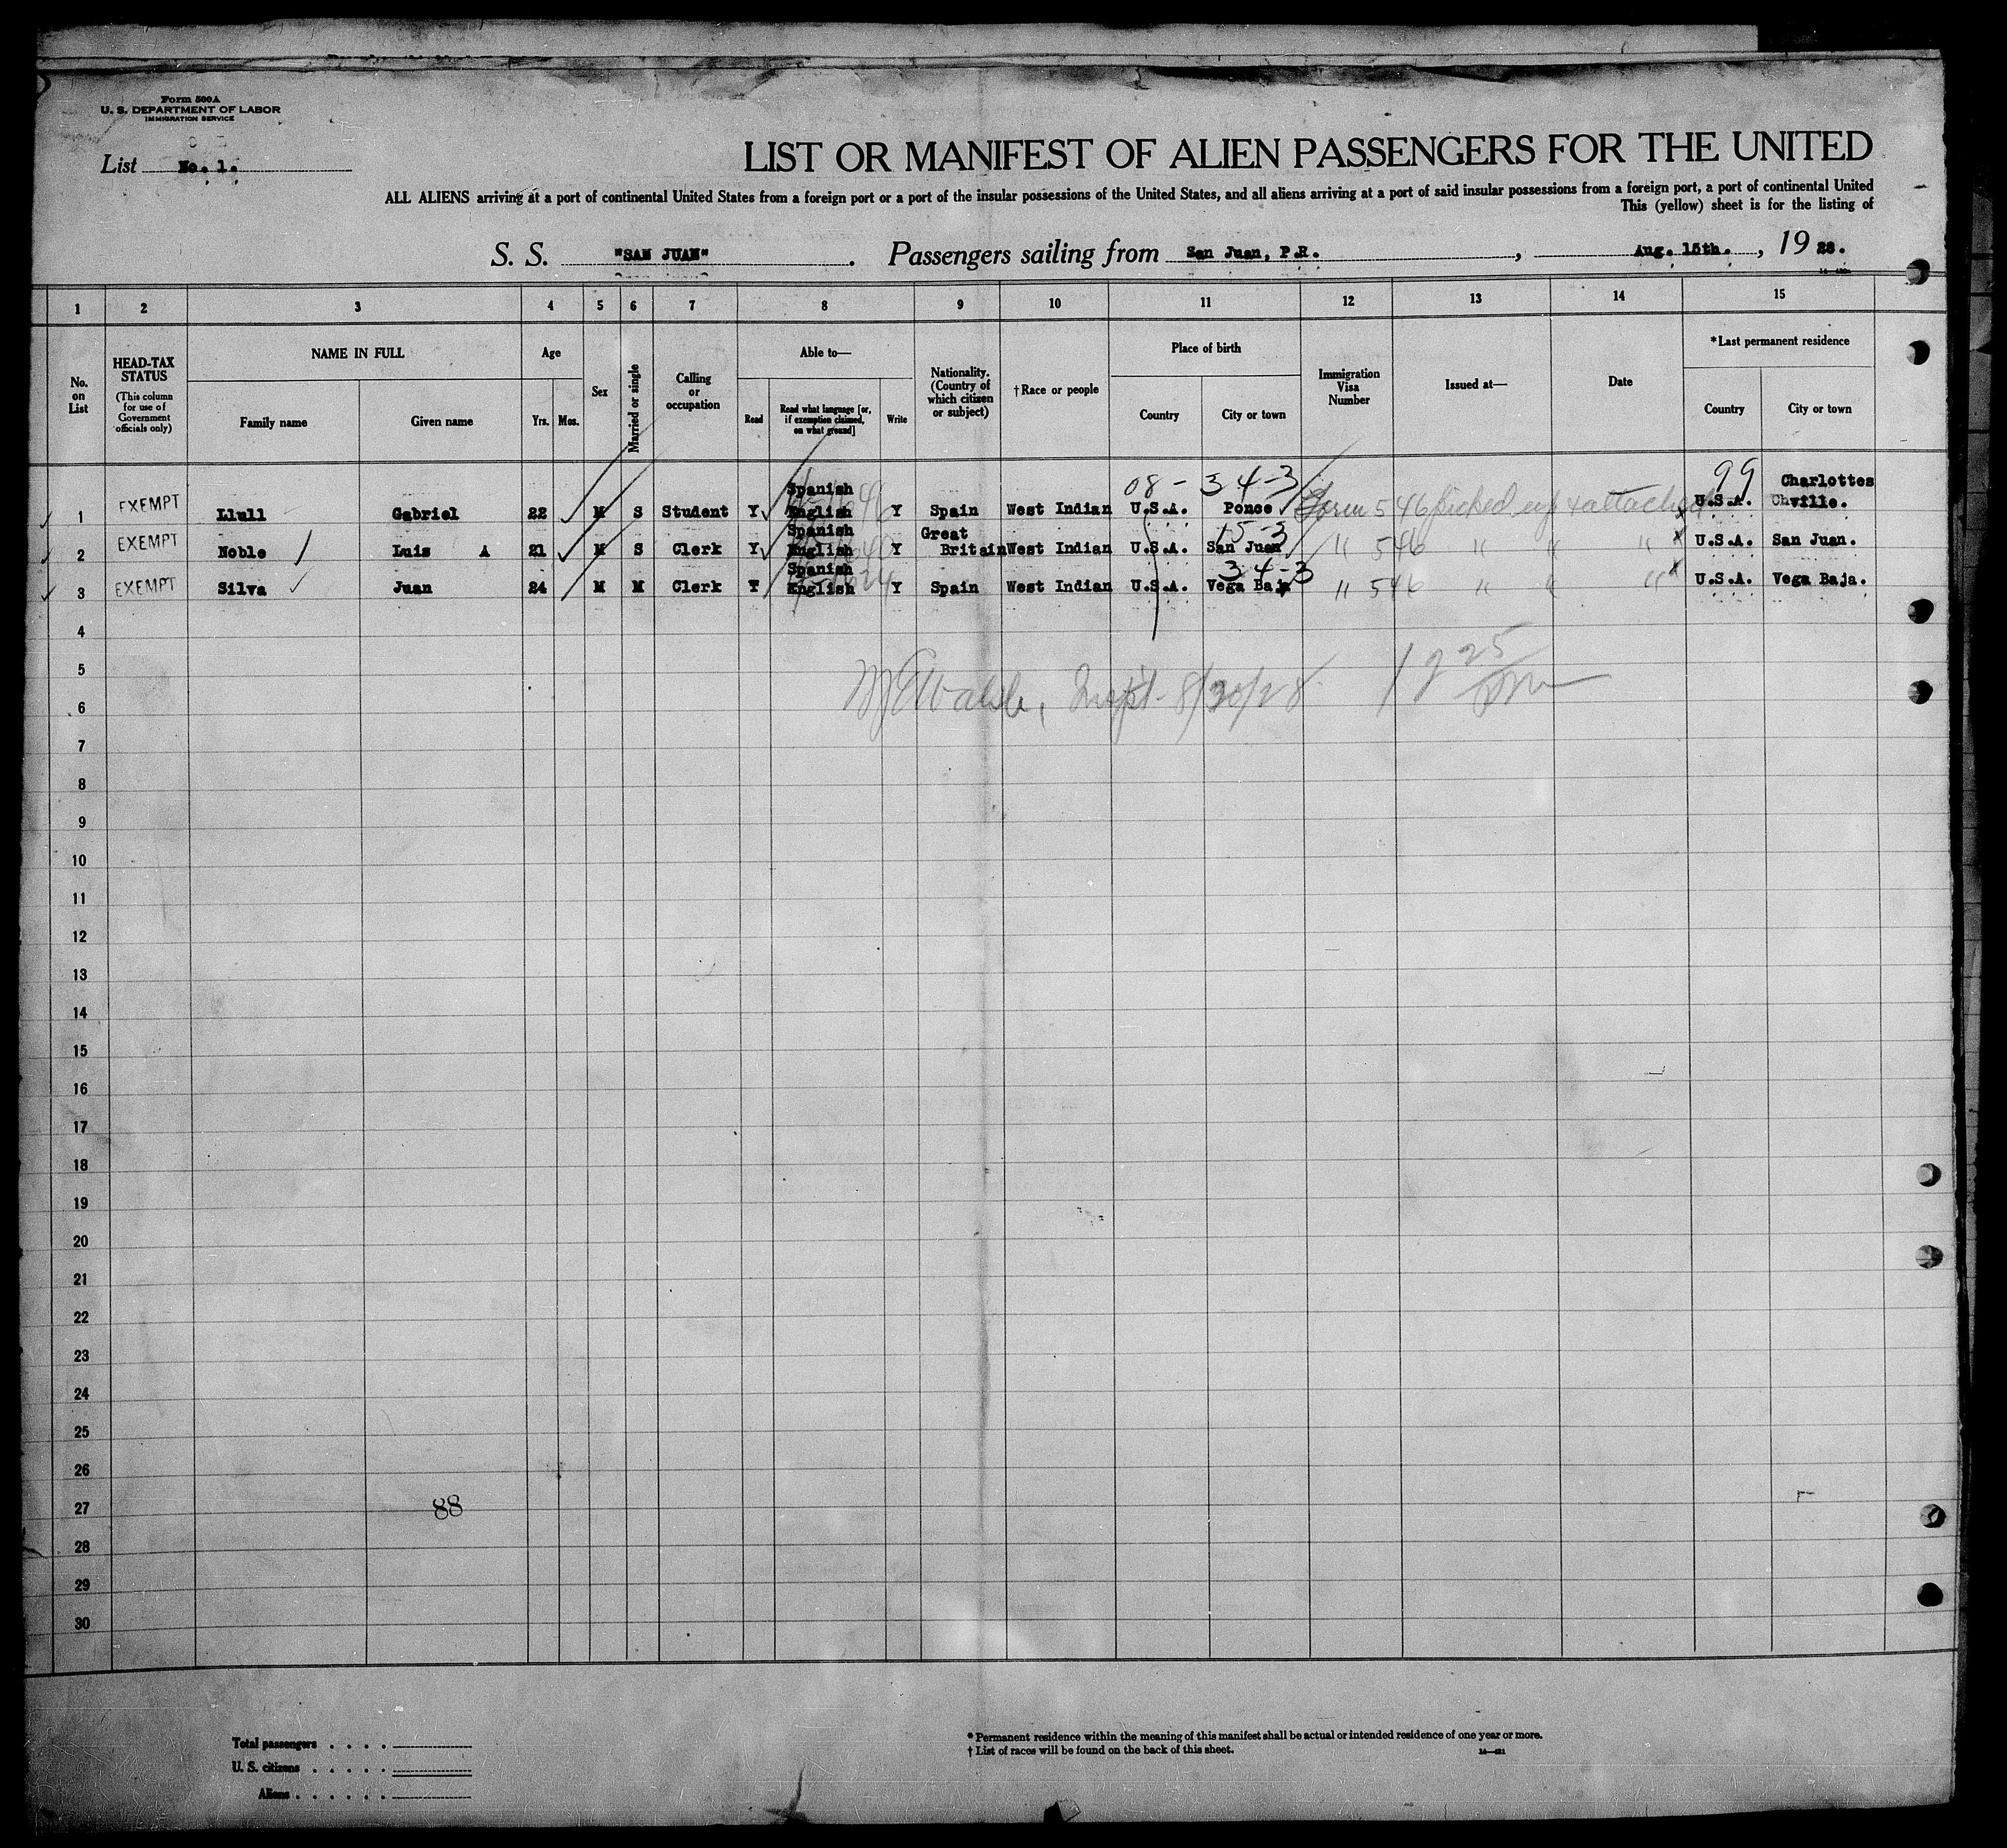 Form 500A
U. S. DEPARTMENT OF LABOR
IMMIGRATION SERVICE
List No. 1.
LIST OR MANIFEST OF ALIEN PASSENGERS FOR THE UNITED
ALL ALIENS arriving at a port of continental United States from a foreign port or a port of the insular possessions of the United States, and all aliens arriving at a port of said insular possessions from a foreign port, a port of continental United
This (yellow) sheet is for the listing of
S. S. "SAN JUAN". Passengers sailing from San Juan, P.R., Aug. 15th., 19 28.
1 2 3 4 5 6 7 8 9 10 11 12 13 14 15
No. on List
HEAD-TAX STATUS (This column for use of Government officials only)
NAME IN FULL
Family name Given name
Age
Yrs. Mos.
Sex
Married or single
Calling or occupation
Able to—
Read Read what language [or, if exemption claimed, on what ground] Write
Nationality. (Country of which citizen or subject)
† Race or people
Place of birth
Country City or town
Immigration Visa Number
Issued at—
Date
* Last permanent residence
Country City or town
08 - 34-3 99
1 EXEMPT Llull Gabriel 22 M S Student Y Spanish English Y Spain West Indian U.S.A. Ponce Form 546 picked up & attached U.S.A. Charlottes ville.
15-3
2 EXEMPT Noble Luis A 21 M S Clerk Y Spanish English Y Great Britain West Indian U.S.A. San Juan " 546 " " " U.S.A. San Juan.
34-3
3 EXEMPT Silva Juan 24 M M Clerk Y Spanish English Y Spain West Indian U.S.A. Vega Baja " 546 " " " U.S.A. Vega Baja.
4
5
Walsh, Inspt. 8/20/28
6
7
8
9
10
11
12
13
14
15
16
17
18
19
20
21
22
23
24
25
26
27 88
28
29
30
Total passengers . . . .
U. S. citizens . . . . .
Aliens . . . . . .
* Permanent residence within the meaning of this manifest shall be actual or intended residence of one year or more.
† List of races will be found on the back of this sheet.